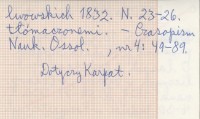 lwowskich 1832. N. 23-26.
tłómaczonemi. - Czasopism
Nauk. Ossol. , nr 4: 49-89.
Dotyczy Karpat.